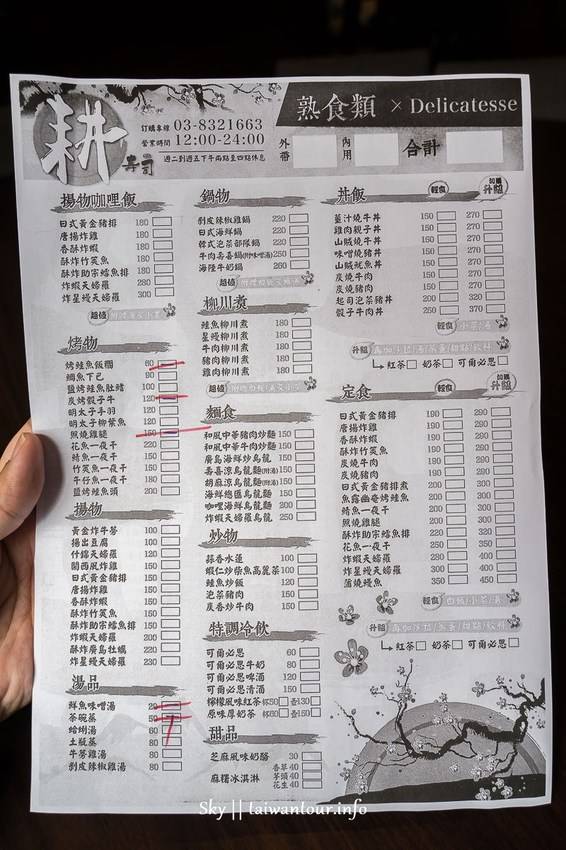 耕
壽司
訂購專線 03-8321663
營業時間 12:00-24:00
週二到週五下午兩點至四點休息
熟食類 × Delicatesse
外番
內用
合計
揚物咖哩飯
日式黃金豬排 180
唐揚炸雞 180
香酥炸蝦 180
酥炸竹筴魚 180
酥炸助宗鱈魚排 180
炸蝦天婦羅 280
炸星鰻天婦羅 300
超值
烤物
烤鮭魚飯糰 80
鯛魚下巴 90
鹽烤鮭魚肚鰭 100
炭烤骰子牛 120
明太子手羽 120
明太子柳葉魚 120
照燒雞腿 150
花魚一夜干 220
鯖魚一夜干 150
竹筴魚一夜干 150
午仔魚一夜干 180
鹽烤鮭魚頭 200
揚物
黃金炸牛蒡 100
揚出豆腐 100
什錦天婦羅 120
關西風炸雞 120
日式黃金豬排 120
唐揚炸雞 120
香酥炸蝦 150
酥炸竹筴魚 150
酥炸助宗鱈魚排 150
炸蝦天婦羅 200
酥炸廣島牡蠣 220
炸星鰻天婦羅 230
湯品
鮮魚味噌湯 20
茶碗蒸 50
蛤蜊湯 60
土瓶蒸 80
牛蒡雞湯 80
剝皮辣椒雞湯 80
鍋物
剝皮辣椒雞鍋 220
日式海鮮鍋 220
韓式泡菜部隊鍋 220
牛肉壽喜鍋(附味噌湯) 250
海陸牛奶鍋 280
超值
柳川煮
鮭魚柳川煮 180
星鰻柳川煮 180
牛肉柳川煮 180
豬肉柳川煮 180
雞肉柳川煮 180
超值
麵食
和風中華豬肉炒麵 150
和風中華牛肉炒麵 150
壽喜涼烏龍麵(附湯) 150
胡麻涼烏龍麵(附湯) 150
海鮮總匯烏龍麵 150
咖哩海鮮烏龍麵 200
炸蝦天婦羅烏龍 250
炒物
蒜香水蓮 100
蝦仁炒柴魚高麗菜 100
鮭魚炒飯 120
泡菜豬肉 150
炭香炒牛肉 150
特調冷飲
可爾必思 60
可爾必思牛奶 80
可爾必思啤酒 120
可爾必思清酒 150
檸檬風味紅茶 杯50 壺130
原味厚奶茶 杯60 壺150
甜品
芝麻風味奶酪 30
麻糬冰淇淋 香草 40
芋頭 40
花生 40
丼飯
輕食
加購升級
薑汁燒牛丼 150 270
雞肉親子丼 150 270
山賊燒牛丼 150 270
味噌燒豬丼 150 270
山賊魷魚丼 150 270
炭燒牛肉 150 270
炭燒豬肉 150 270
起司泡菜豬丼 200 320
骰子牛肉丼 250 370
輕食 小菜/湯
升級
紅茶 奶茶 可爾必思
定食
輕食
加購升級
日式黃金豬排 190 290
唐揚炸雞 190 290
香酥炸蝦 190 290
酥炸竹筴魚 190 290
炭燒牛肉 190 290
炭燒豬肉 190 290
日式黃金豬排煮 200 300
魚露幽庵烤鮭魚 200 300
鯖魚一夜干 200 300
照燒雞腿 200 300
酥炸助宗鱈魚排 220 320
花魚一夜干 250 350
炸蝦天婦羅 280 400
炸星鰻天婦羅 300 400
蒲燒鰻魚 350 450
輕食 白飯/小菜/湯
升級
紅茶 奶茶 可爾必思
Sky || taiwantour.info